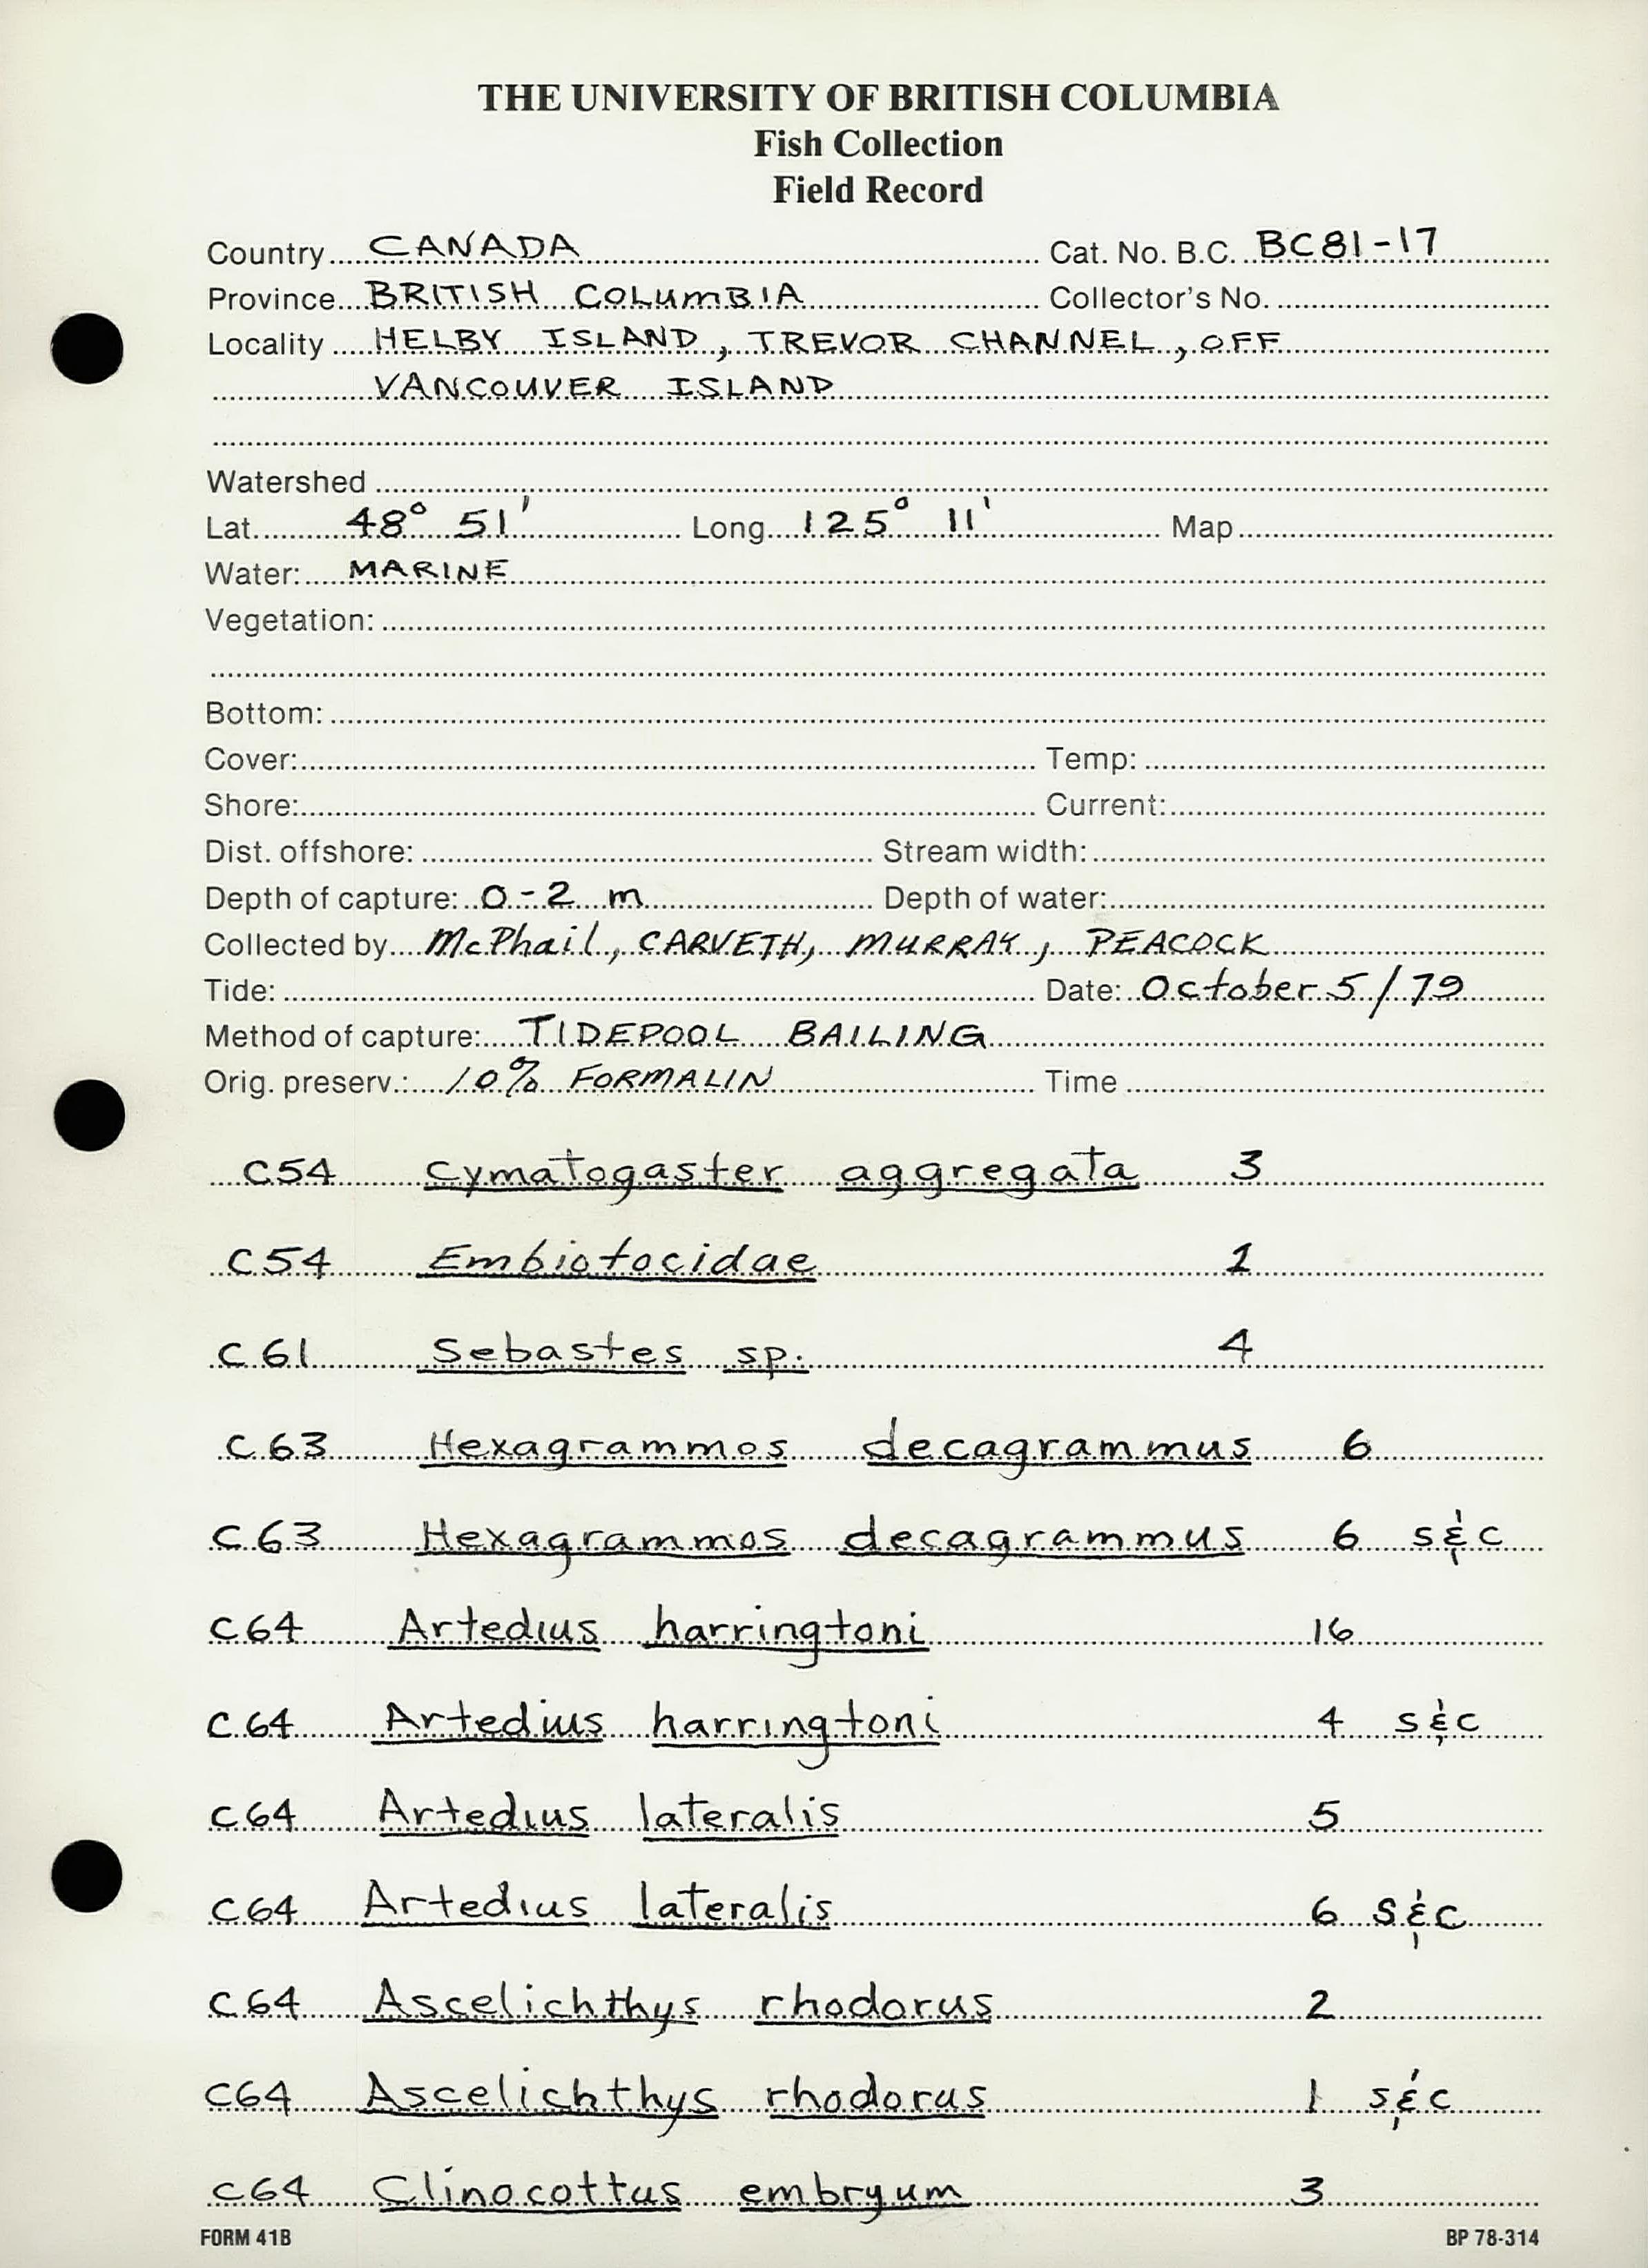 THE UNIVERSITY OF BRITISH COLUMBIA
Fish Collection
Field Record
Country CANADA Cat. No. B.C. BC81-17
Province BRITISH COLUMBIA Collector's No.
Locality HELBY ISLAND, TREVOR CHANNEL, OFF
VANCOUVER ISLAND
Watershed
Lat. 48° 51' Long. 125° 11' Map
Water: MARINE
Vegetation:
Bottom:
Cover: Temp:
Shore: Current:
Dist. offshore: Stream width:
Depth of capture: 0-2 m Depth of water:
Collected by McPhail, CARVETH, MURRAY, PEACOCK
Tide: Date: October 5/79
Method of capture: TIDEPOOL BAILING
Orig. preserv.: 10% FORMALIN Time
C54 Cymatogaster aggregata 3
C54 Embiotocidae 1
C61 Sebastes sp. 4
C63 Hexagrammos decagrammus 6
C63 Hexagrammos decagrammus 6 s&c
C64 Artedius harringtoni 16
C64 Artedius harringtoni 4 s&c
C64 Artedius lateralis 5
C64 Artedius lateralis 6 s&c
C64 Ascelichthys rhodorus 2
C64 Ascelichthys rhodorus 1 s&c
C64 Clinocottus embryum 3
FORM 41B BP 78-314